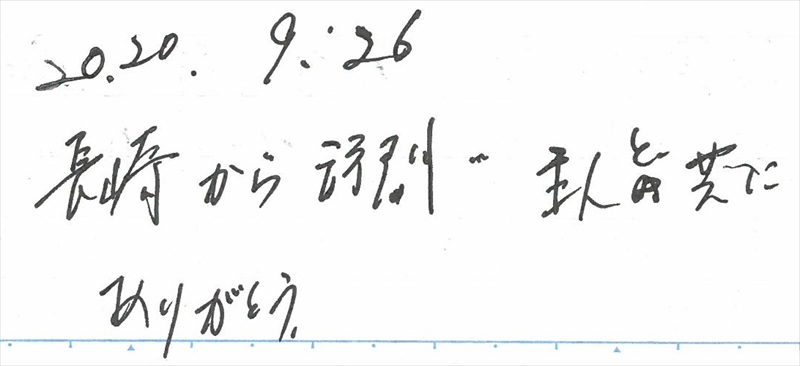 20.20. 9.26
長崎から訪問‥ 主人と共に
ありがとう